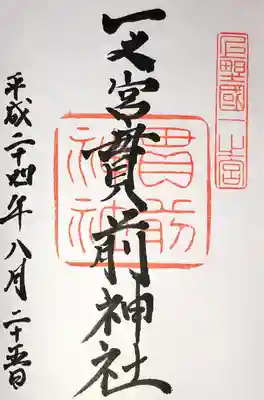 上野國一之宮
一之宮貫前神社
貫前神社
平成二十四年八月二十五日